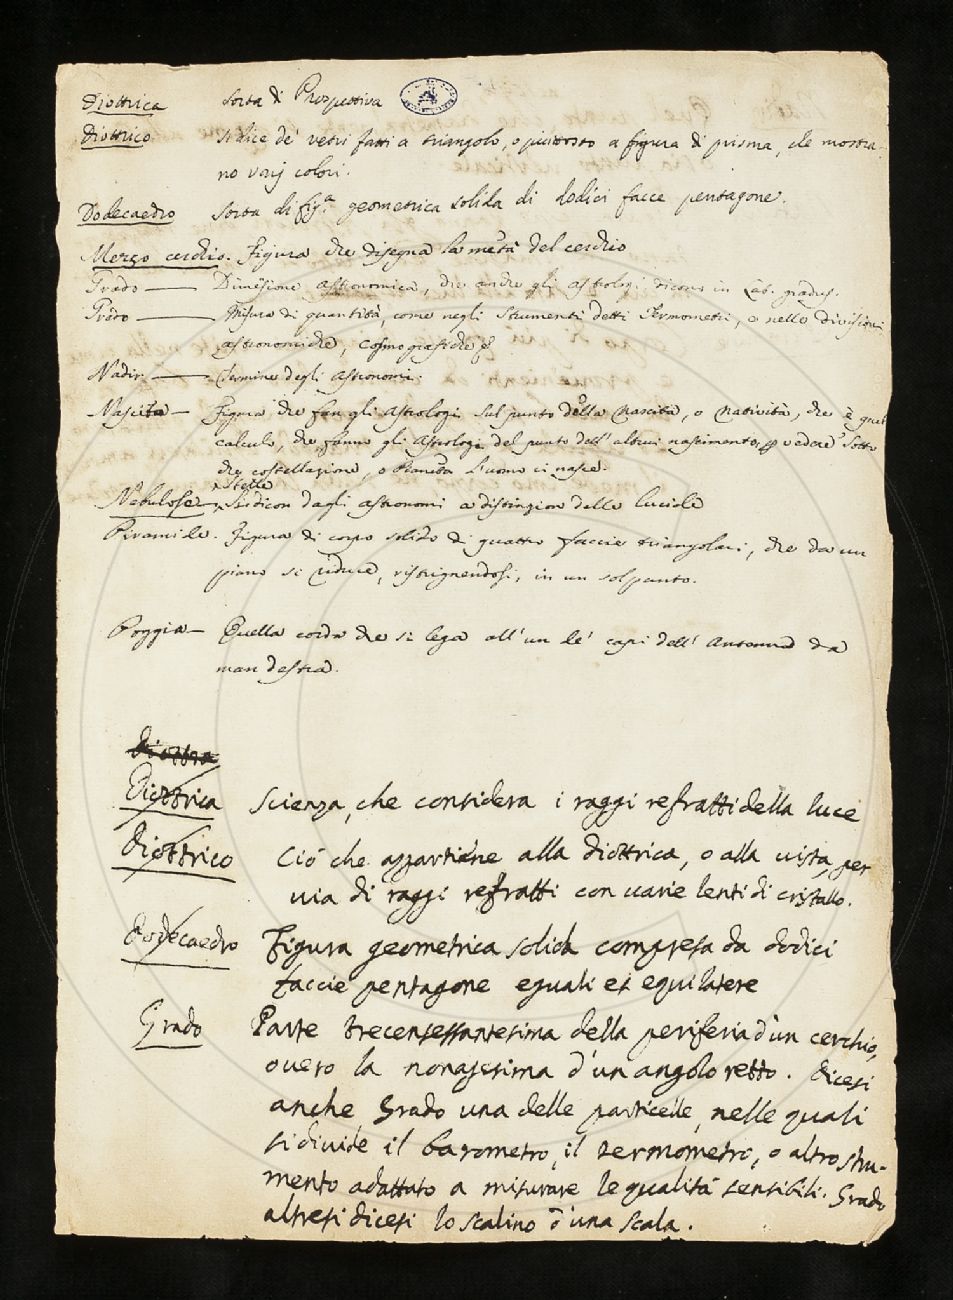 Diottrica Sorta di Prospettiva
Diottrico Si dice de' vetri fatti a triangolo, o piuttosto a figura di prisma, che mostra-
no varij colori.
Dodecaedro Sorta di fig.a geometrica solida di dodici facce pentagone.
Mezzo cerchio. Figura che disegna la metà del cerchio
Grado — Dimēsione astronomica, che anche gli astrologi dicono in Lat. gradus.
Grado — Misura di quantità, come negli Strumenti detti Termometri, o nelle divisioni
astronomiche, cosmografiche
Nadir — Termine degli astronomi.
Nascita — Figura che fan gli Astrologi sul punto della nascita, o natività, che è quel
calcolo, che fanno gli Astrologi del punto dell' altrui nascimento, vedere sotto
che costellazione, o Pianeta l'uomo ci nasce.
stelle
Nebulose — Si dicon dagli astronomi a distinzion delle lucide
Piramide. Figura di corpo solido di quattro faccie triangolari, che da un
piano si riduce, ristrignendosi, in un sol punto.
Poggia — Quella corda che si lega all' un de' capi dell' Antenna da
man destra.
Diottra
Diottrica Scienza, che considera i raggi refratti della luce
Diottrico Ciò che appartiene alla diottrica, o alla vista, per
via di raggi refratti con varie lenti di cristallo.
Dodecaedro Figura geometrica solida compresa da dodici
faccie pentagone eguali et equilatere
Grado Parte trecensessantesima della periferia d'un cerchio,
overo la nonagesima d'un angolo retto. Dicesi
anche Grado una delle particelle, nelle quali
si divide il barometro, il termometro, o altro stru-
mento adattato a misurare le qualità sensibili. Grado
altresi dicesi lo scalino d'una scala.